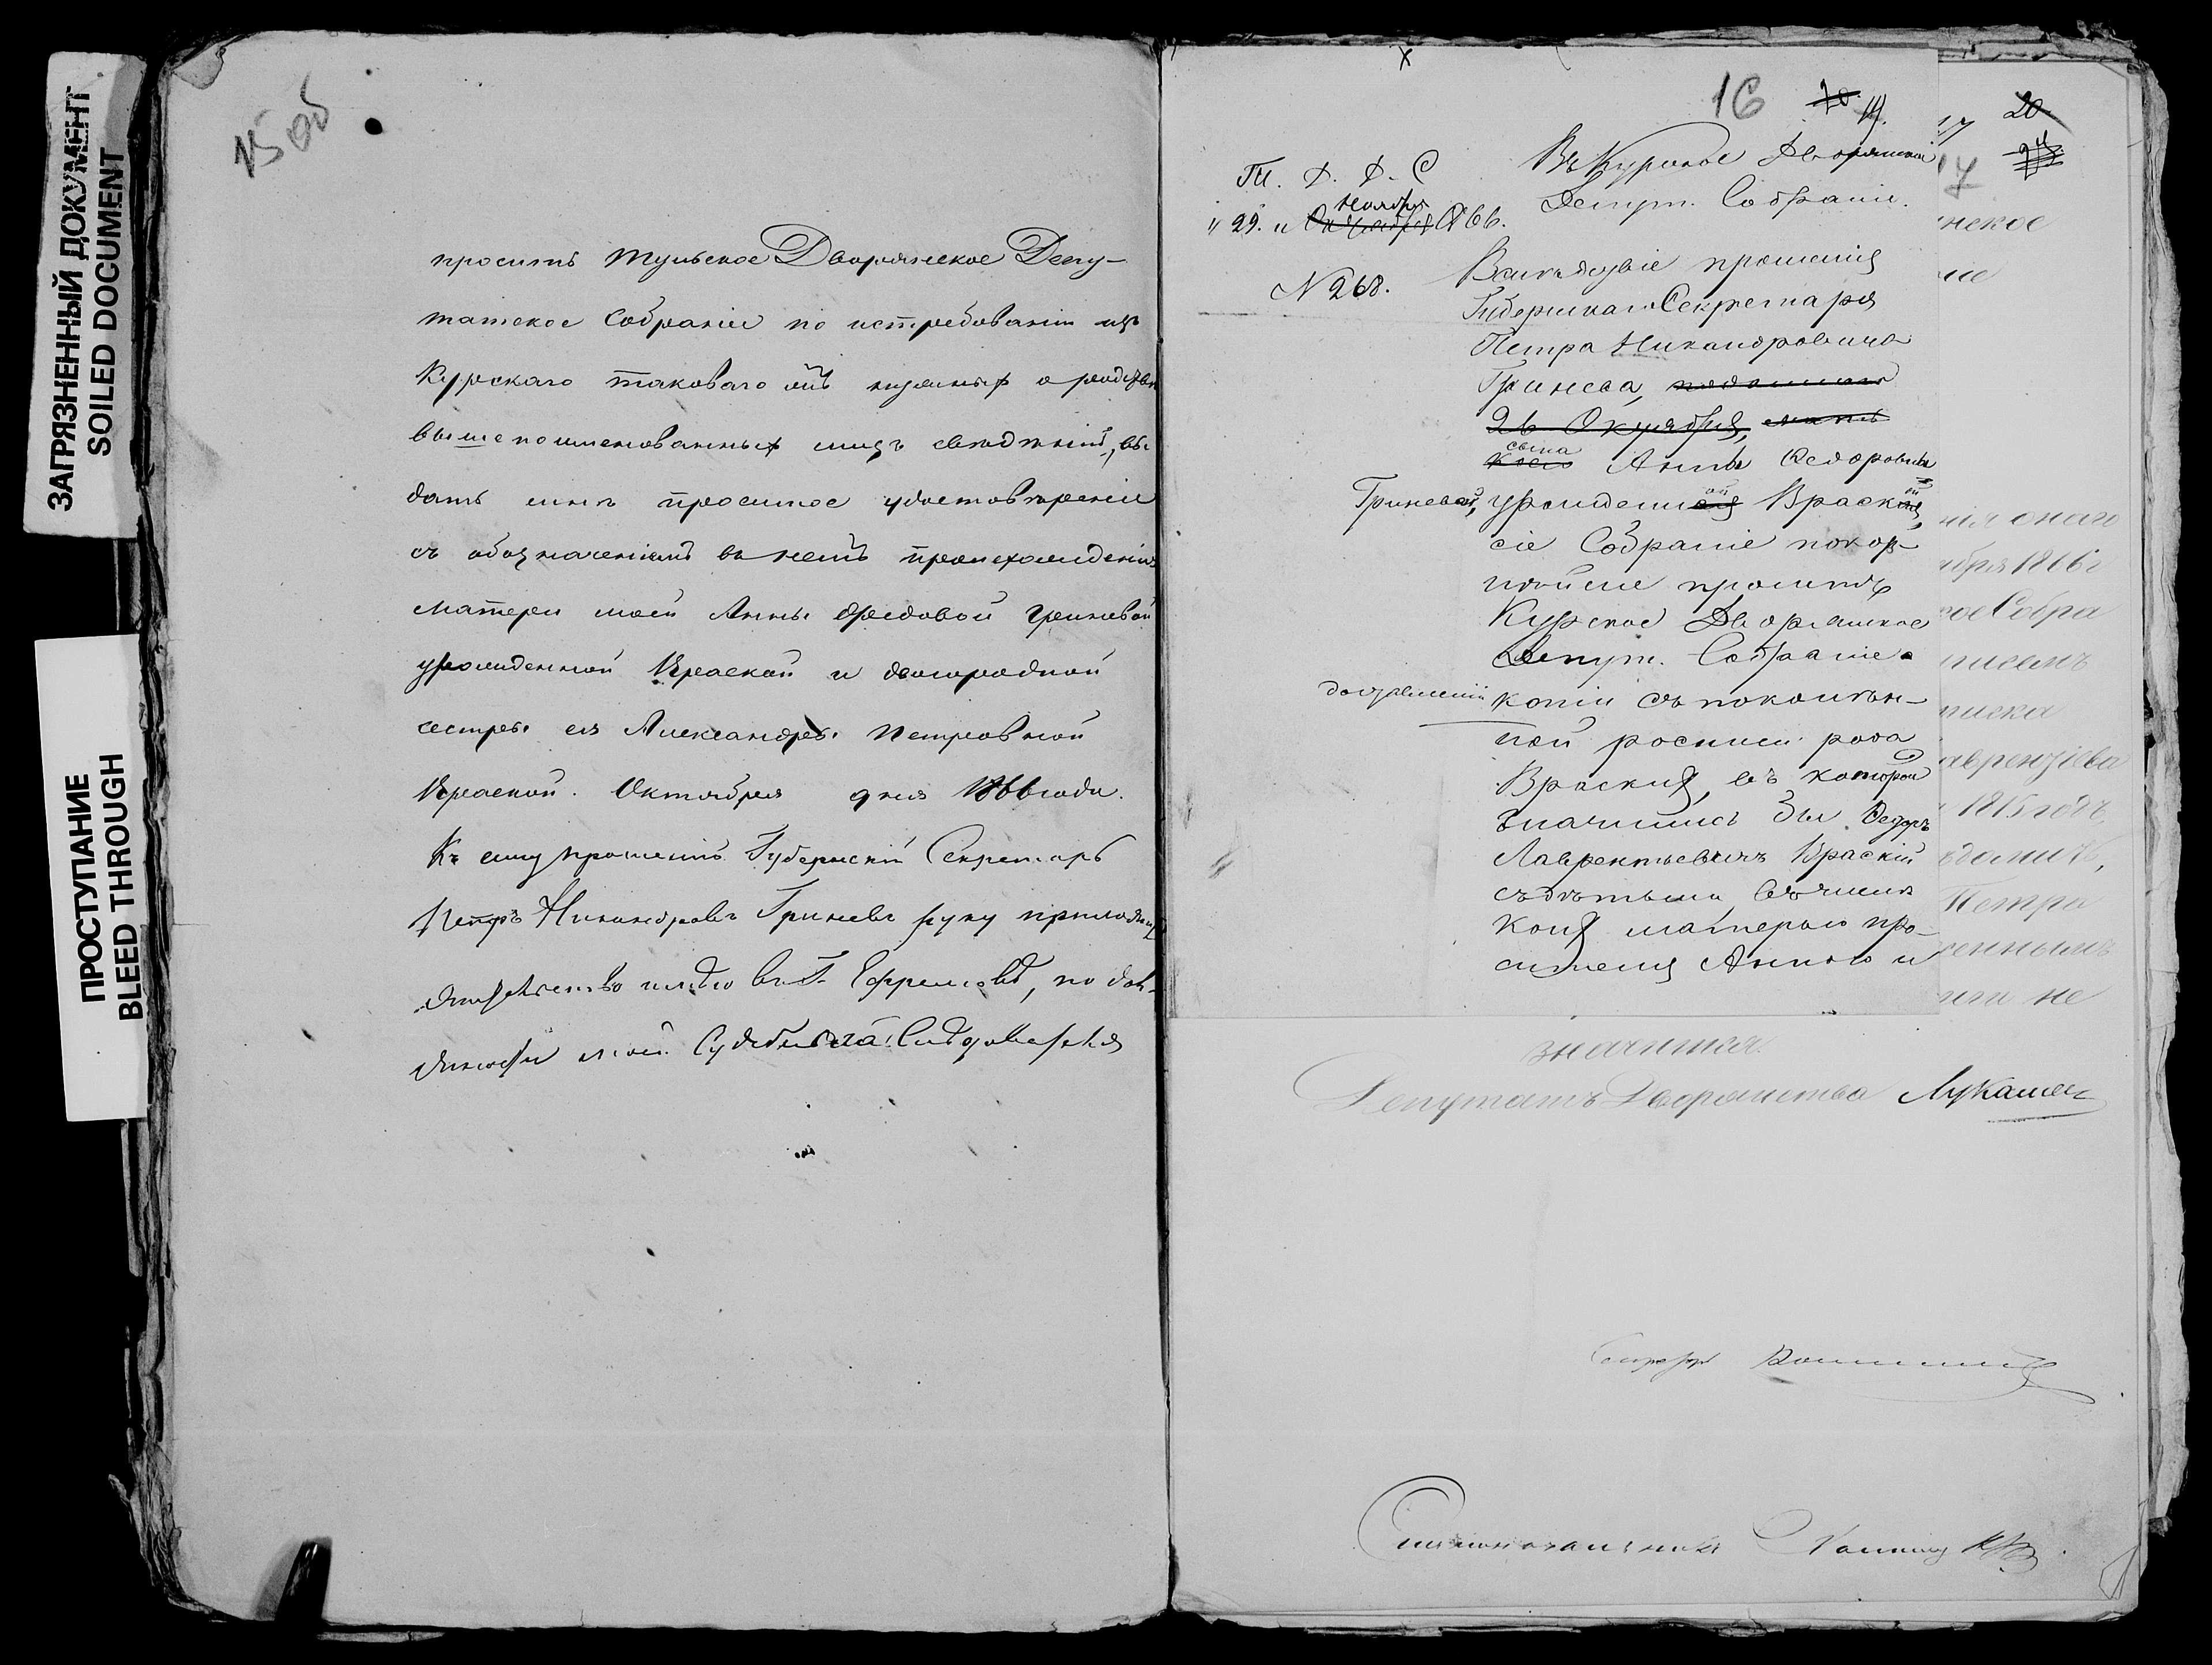 ЗАГРЯЗНЕННЫЙ ДОКУМЕНТ
SOILED DOCUMENT
ПРОСТУПАНИЕ
BLEED THROUGH
15 об
просить Тульское Дворянское Депу-
татское Собраніе по истребованіи изъ
Курскаго таковаго онъ нужныхъ о родствѣ
вышепоименованныхъ лицъ свѣдѣній, вы
дать мнѣ просимое удостовѣреніе
съ обозначеніемъ въ немъ происхожденія
матери моей Анны Федовой Гриневой
урожденной Враской и двоюродной
сестры ея Александры Петровной
Враской. Октября дня 1866 года.
Къ сему прошенію Губернскій Секретарь
Петръ Никандровъ Гриневъ руку приложилъ
жительство имѣю въ Г. Ефремовѣ, по дол-
жности моей Судебнаго Слѣдователя
16 20 19.
Т. Д. Д. С
Въ Курское Дворянское
Депут. Собраніе.
Ноября
" 29. " Октября 1866.
N 268.
Вслѣдствіе прошенія
Губернскаго Секретаря
Петра Никандровича
Гринева, поданнаго
26 Октября, мать
сына
коего Анны Федоровны
Гриневой, урожденной Враской,
сіе Собраніе покор-
нѣйше проситъ
Курское Дворянское
Депут. Собраніе
доставленіи копіи съ поколѣн-
ной росписи рода
Враскихъ, въ которой
значились бы Федоръ
Лаврентьевичъ Враскій
съ дѣтьми, въ числѣ
коихъ матерью про-
сителя Анною и
17 20
17 24
нское
ніе
нія онаго
ября 1866 г
ое Собра
писемъ
писка
аврентіева
1815 годъ,
Петра
еннымъ
ми не
значится.
Депутатъ Дворянства Лукашевъ
Секретарь
Столоначальникъ